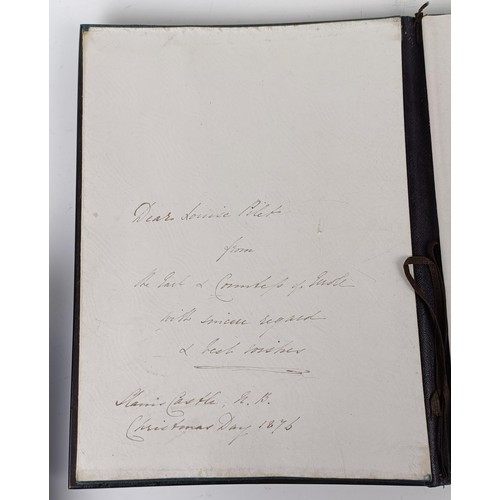 Dear Louise
from
the Earl & Countess of
with sincere regard
& best wishes
Slains Castle. N.B.
Christmas Day 1876